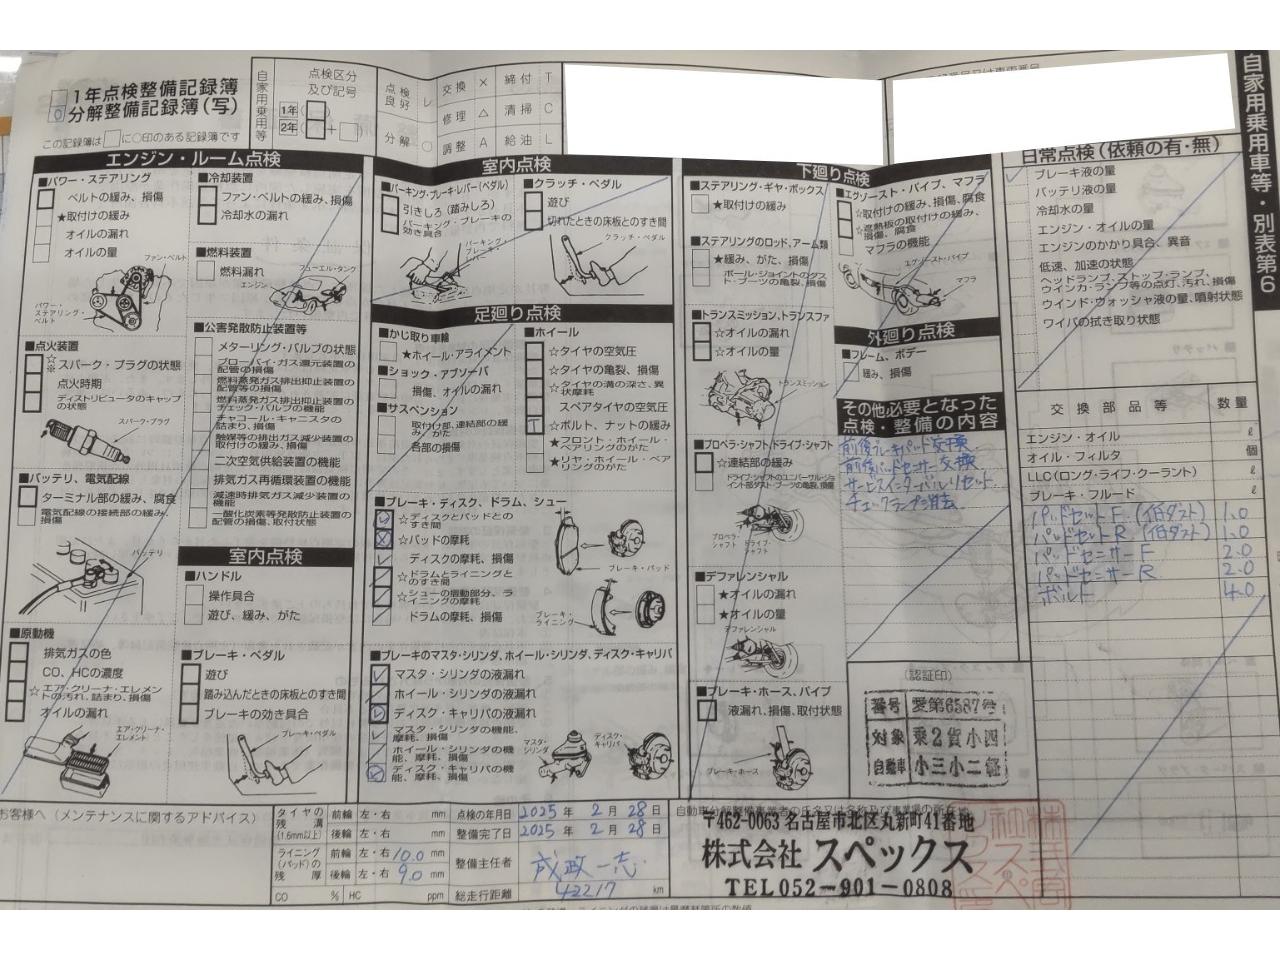 1年点検整備記録簿
分解整備記録簿(写)
この記録簿は□に○印のある記録簿です
自家用乗用等
点検区分
及び記号
1年(
2年
+
点検良好 レ
交換 ×
締付 T
修理 △
清掃 C
分解 ○
調整 A
給油 L
自家用乗用車等・別表第6
エンジン・ルーム点検
■パワー・ステアリング
ベルトの緩み、損傷
★取付けの緩み
オイルの漏れ
オイルの量
ファン・ベルト
パワー・ステアリング・ベルト
■点火装置
☆※スパーク・プラグの状態
点火時期
ディストリビュータのキャップの状態
スパーク・プラグ
■バッテリ、電気配線
ターミナル部の緩み、腐食
電気配線の接続部の緩み、損傷
バッテリ
■原動機
排気ガスの色
CO、HCの濃度
☆エア・クリーナ・エレメントの汚れ、詰まり、損傷
オイルの漏れ
エア・クリーナ・エレメント
■冷却装置
ファン・ベルトの緩み、損傷
冷却水の漏れ
■燃料装置
燃料漏れ
フューエル・タンク
エンジン
■公害発散防止装置等
メターリング・バルブの状態
ブローバイ・ガス還元装置の配管の損傷
燃料蒸発ガス排出抑止装置の配管等の損傷
燃料蒸発ガス排出抑止装置のチェック・バルブの機能
チャコール・キャニスタの詰まり、損傷
触媒等の排出ガス減少装置の取付けの緩み、損傷
二次空気供給装置の機能
排気ガス再循環装置の機能
減速時排気ガス減少装置の機能
一酸化炭素等発散防止装置の配管の損傷、取付状態
室内点検
■ハンドル
操作具合
遊び、緩み、がた
■ブレーキ・ペダル
遊び
踏み込んだときの床板とのすき間
ブレーキの効き具合
ブレーキ・ペダル
室内点検
■パーキング・ブレーキ・レバー(ペダル)
引きしろ(踏みしろ)
パーキング・ブレーキの効き具合
パーキング・ブレーキ・レバー
■クラッチ・ペダル
遊び
切れたときの床板とのすき間
クラッチ・ペダル
足廻り点検
■かじ取り車輪
★ホイール・アライメント
■ショック・アブソーバ
損傷、オイルの漏れ
■サスペンション
取付け部、連結部の緩み、がた
各部の損傷
■ホイール
☆タイヤの空気圧
☆タイヤの亀裂、損傷
☆タイヤの溝の深さ、異状摩耗
スペアタイヤの空気圧
T
☆ボルト、ナットの緩み
★フロント・ホイール・ベアリングのがた
★リヤ・ホイール・ベアリングのがた
■ブレーキ・ディスク、ドラム、シュー
☆ディスクとパッドとのすき間
☆パッドの摩耗
ディスクの摩耗、損傷
☆ドラムとライニングとのすき間
☆シューの摺動部分、ライニングの摩耗
ドラムの摩耗、損傷
ブレーキ・パッド
ブレーキ・ライニング
■ブレーキのマスタ・シリンダ、ホイール・シリンダ、ディスク・キャリパ
マスタ・シリンダの液漏れ
ホイール・シリンダの液漏れ
ディスク・キャリパの液漏れ
マスタ・シリンダの機能、摩耗、損傷
ホイール・シリンダの機能、摩耗、損傷
ディスク・キャリパの機能、摩耗、損傷
マスタ・シリンダ
ディスク・キャリパ
下廻り点検
■ステアリング・ギヤ・ボックス
★取付けの緩み
■ステアリングのロッド、アーム類
★緩み、がた、損傷
ボール・ジョイントのダスト・ブーツの亀裂、損傷
■トランスミッション、トランスファ
☆オイルの漏れ
☆オイルの量
トランスミッション
■プロペラ・シャフト、ドライブ・シャフト
☆連結部の緩み
ドライブ・シャフトのユニバーサル・ジョイント部ダスト・ブーツの亀裂、損傷
プロペラ・シャフト
ドライブ・シャフト
■デファレンシャル
★オイルの漏れ
★オイルの量
デファレンシャル
■ブレーキ・ホース、パイプ
液漏れ、損傷、取付状態
ブレーキ・ホース
■エグゾースト・パイプ、マフラ
☆取付けの緩み、損傷、腐食
☆遮熱板の取付けの緩み、損傷、腐食
マフラの機能
エグゾースト・パイプ
マフラ
外廻り点検
■フレーム、ボデー
緩み、損傷
その他必要となった
点検・整備の内容
前後ブレーキパッド交換
前後パッドセンサー交換
サービスインターバルリセット
チェックランプ消去
(認証印)
番号 愛第6587号
対象 乗2貨小四
自動車 小三小二軽
日常点検(依頼の有・無)
ブレーキ液の量
バッテリ液の量
冷却水の量
エンジン・オイルの量
エンジンのかかり具合、異音
低速、加速の状態
ヘッドランプ、ストップ・ランプ、ウインカ・ランプ等の点灯、汚れ、損傷
ウインド・ウォッシャ液の量、噴射状態
ワイパの拭き取り状態
交換部品等 数量
エンジン・オイル ℓ
オイル・フィルタ 個
LLC(ロング・ライフ・クーラント) ℓ
ブレーキ・フルード ℓ
パッドセットF(低ダスト) 1.0
パッドセットR(低ダスト) 1.0
パッドセンサーF 2.0
パッドセンサーR 2.0
ボルト 4.0
お客様へ(メンテナンスに関するアドバイス)
タイヤの残溝(1.6mm以上)
前輪 左・右 mm
後輪 左・右 mm
ライニング(パッド)の残厚
前輪 左・右 10.0 mm
後輪 左・右 9.0 mm
CO % HC ppm
点検の年月日 2025年 2月 28日
整備完了日 2025年 2月 28日
整備主任者 成政一志
総走行距離 42217 km
自動車分解整備事業者の氏名又は名称及び事業場の所在地
〒462-0063 名古屋市北区丸新町41番地
株式会社 スペックス
TEL052-901-0808